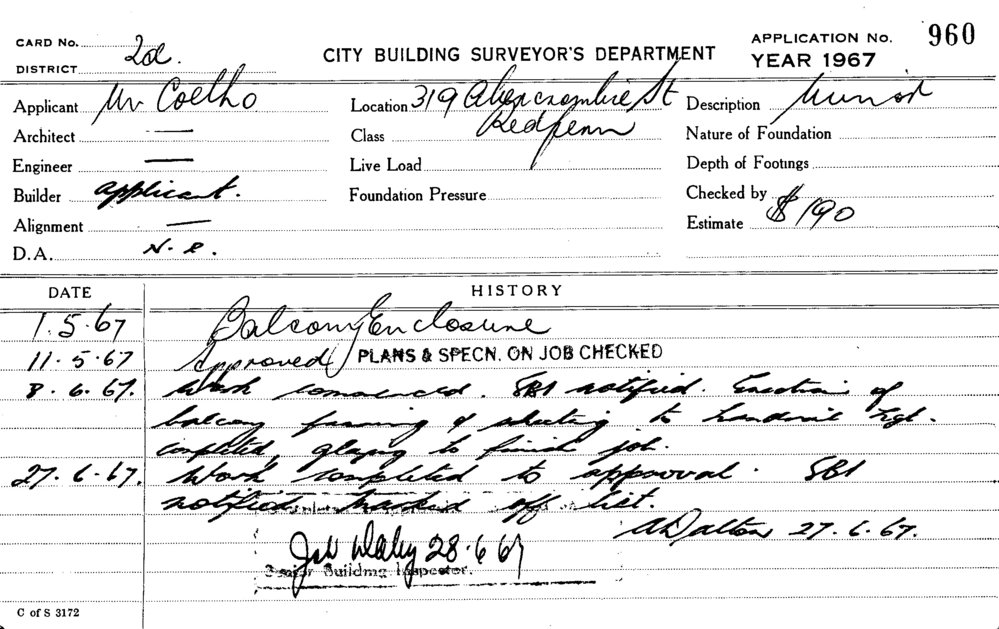 CARD No. APPLICATION No. 960
DISTRICT CITY BUILDING SURVEYOR'S DEPARTMENT YEAR 1967
Applicant Mr Coelho Location 319 Abercrombie St Description Minor
Architect — Class Redfern Nature of Foundation
Engineer — Live Load Depth of Footings
Builder applicant. Foundation Pressure Checked by
Alignment — Estimate $190
D.A. N.R.
DATE HISTORY
1.5.67 Balcony Enclosure
11.5.67 Approved PLANS & SPECN. ON JOB CHECKED
8.6.67. Work commenced. SBI notified. Erection of
balcony framing & sheeting to handrail hgt.
completed, glazing to finish job.
27.6.67. Work completed to approval. SBI
notified marked off list.
A Dalton 27.6.67.
28.6.67
Senior Building Inspector.
C of S 3172